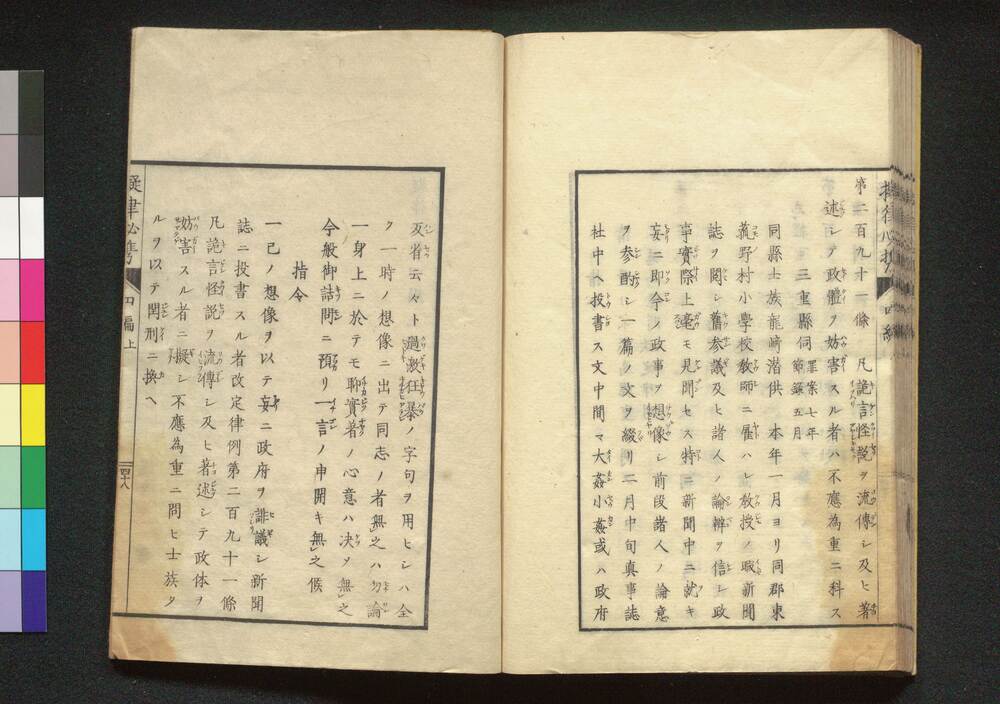 第二百九十一條 凡詭言怪説ヲ流傳シ及ヒ著
述シテ政體ヲ妨害スル者ハ不應為重ニ科ス
三重縣伺 罪案七年
節録五月
同縣士族龍﨑潜供 本年一月ヨリ同郡東
荒野村小學校教師ニ雇ハレ教授ノ暇新聞
誌ヲ閲シ舊参議及ヒ諸人ノ論辯ヲ信シ政
事實際上毫モ見聞セス特ニ新聞中ニ就キ
妄ニ即今ノ政事ヲ想像シ前段諸人ノ論意
ヲ参酌シ一篇ノ文ヲ綴リ二月中旬真事誌
社中ヘ投書ス文中間マ大姦小姦或ハ政府
反省云々ト過激狂暴ノ字句ヲ用ヒシハ全
ク一時ノ想像ニ出テ同志ノ者無之ハ勿論
一身上ニ於テモ聊實着ノ心意ハ决メ無之
今般御詰問ニ預リ一言ノ申開キ無之候
指令
一己ノ想像ヲ以テ妄ニ政府ヲ誹議シ新聞
誌ニ投書スル者改定律例第二百九十一條
凡詭言怪説ヲ流傳シ及ヒ著述シテ政体ヲ
妨害スル者ニ擬シ不應為重ニ問ヒ士族タ
ルヲ以テ閏刑ニ換ヘ
擬律必携 四編上